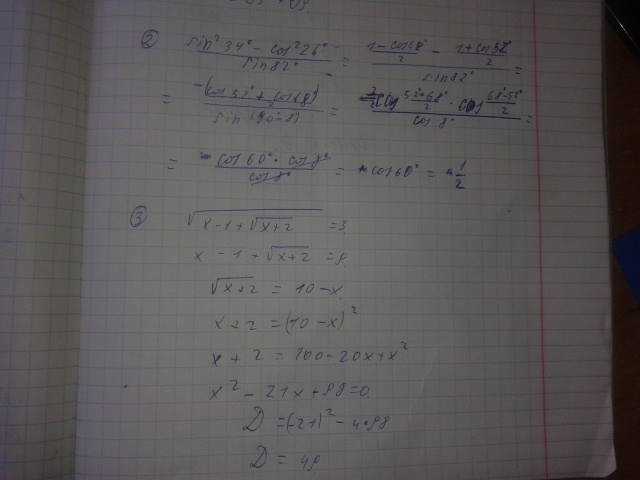 ② (sin²34° - cos²26°)/(sin82°) = ((1-cos68°)/2 - (1+cos52°)/2)/(sin82°) =
= (-(cos52° + cos68°))/(sin(90°-8)) = (cos (52°+68°)/2 · cos (68°-52°)/2)/(cos8°) =
= - (cos60° · cos8°)/(cos8°) = - cos60° = - 1/2
③ √(x-1+√(x+2)) = 3
x - 1 + √(x+2) = 9
√(x+2) = 10-x
x+2 = (10-x)²
x + 2 = 100-20x+x²
x² - 21x + 98=0
D = (-21)² - 4·98
D = 49